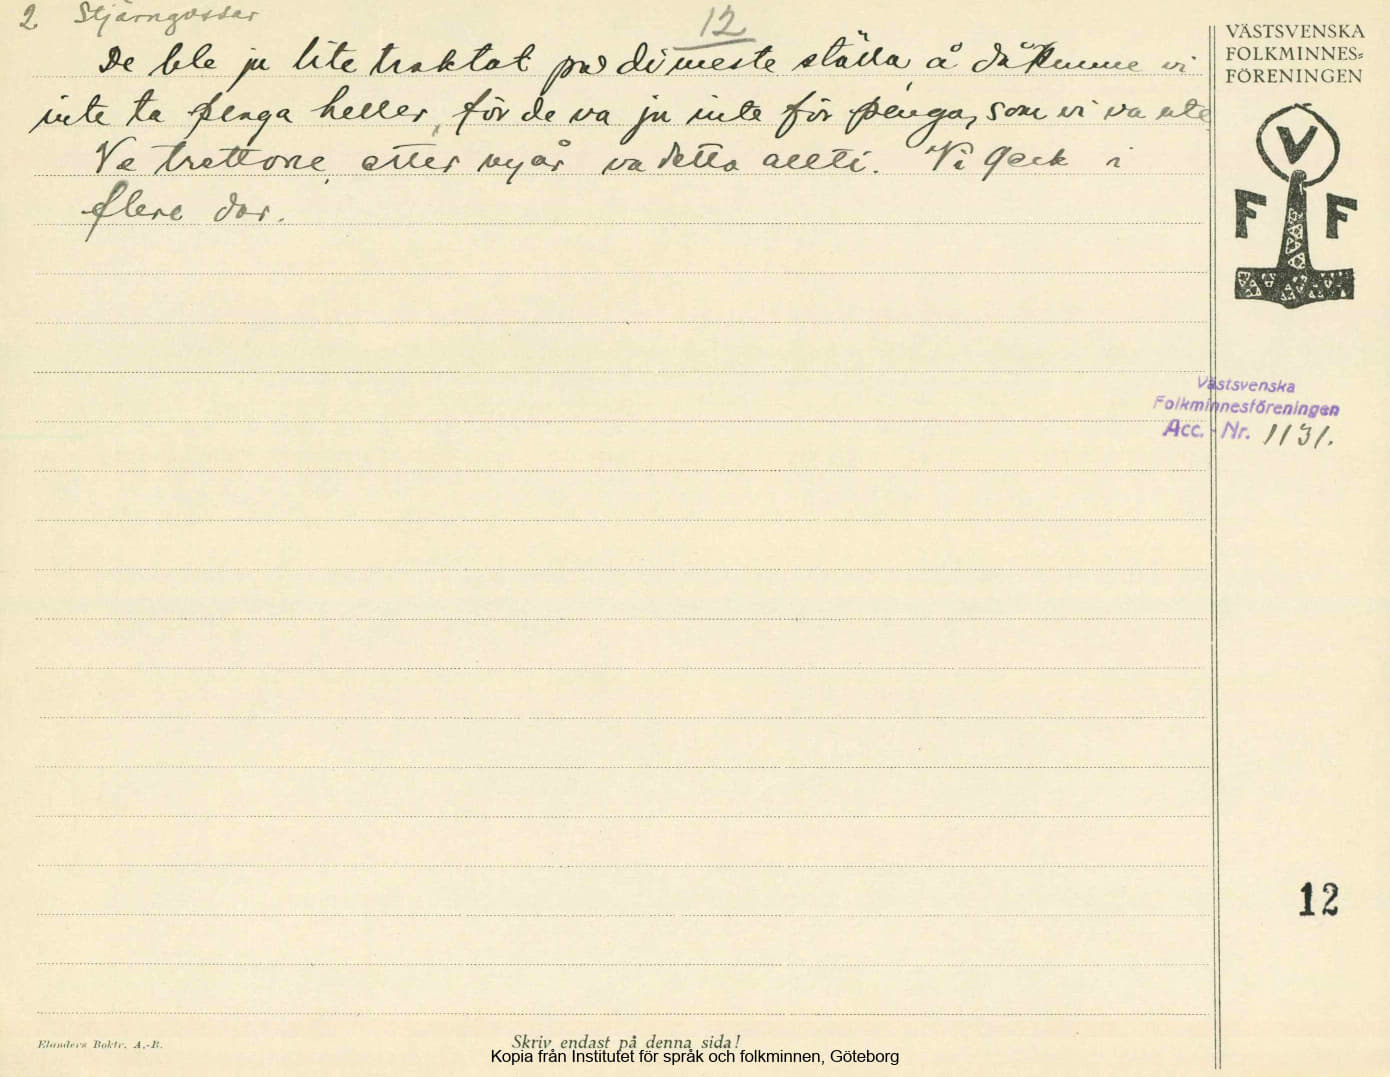 2 Stjärngossar
12
De ble ju lite traktat på di meste ställa å då kunne vi
inte ta penga heller, för de va ju inte för penga, som vi va ute
Ve trettone etter nyår va detta allti. Vi geck i
flere dar.
VÄSTSVENSKA
FOLKMINNES=
FÖRENINGEN
V
F F
Västsvenska
Folkminnesföreningen
Acc.-Nr. 1131.
12
Elanders Boktr. A.-B.
Skriv endast på denna sida!
Kopia från Institutet för språk och folkminnen, Göteborg